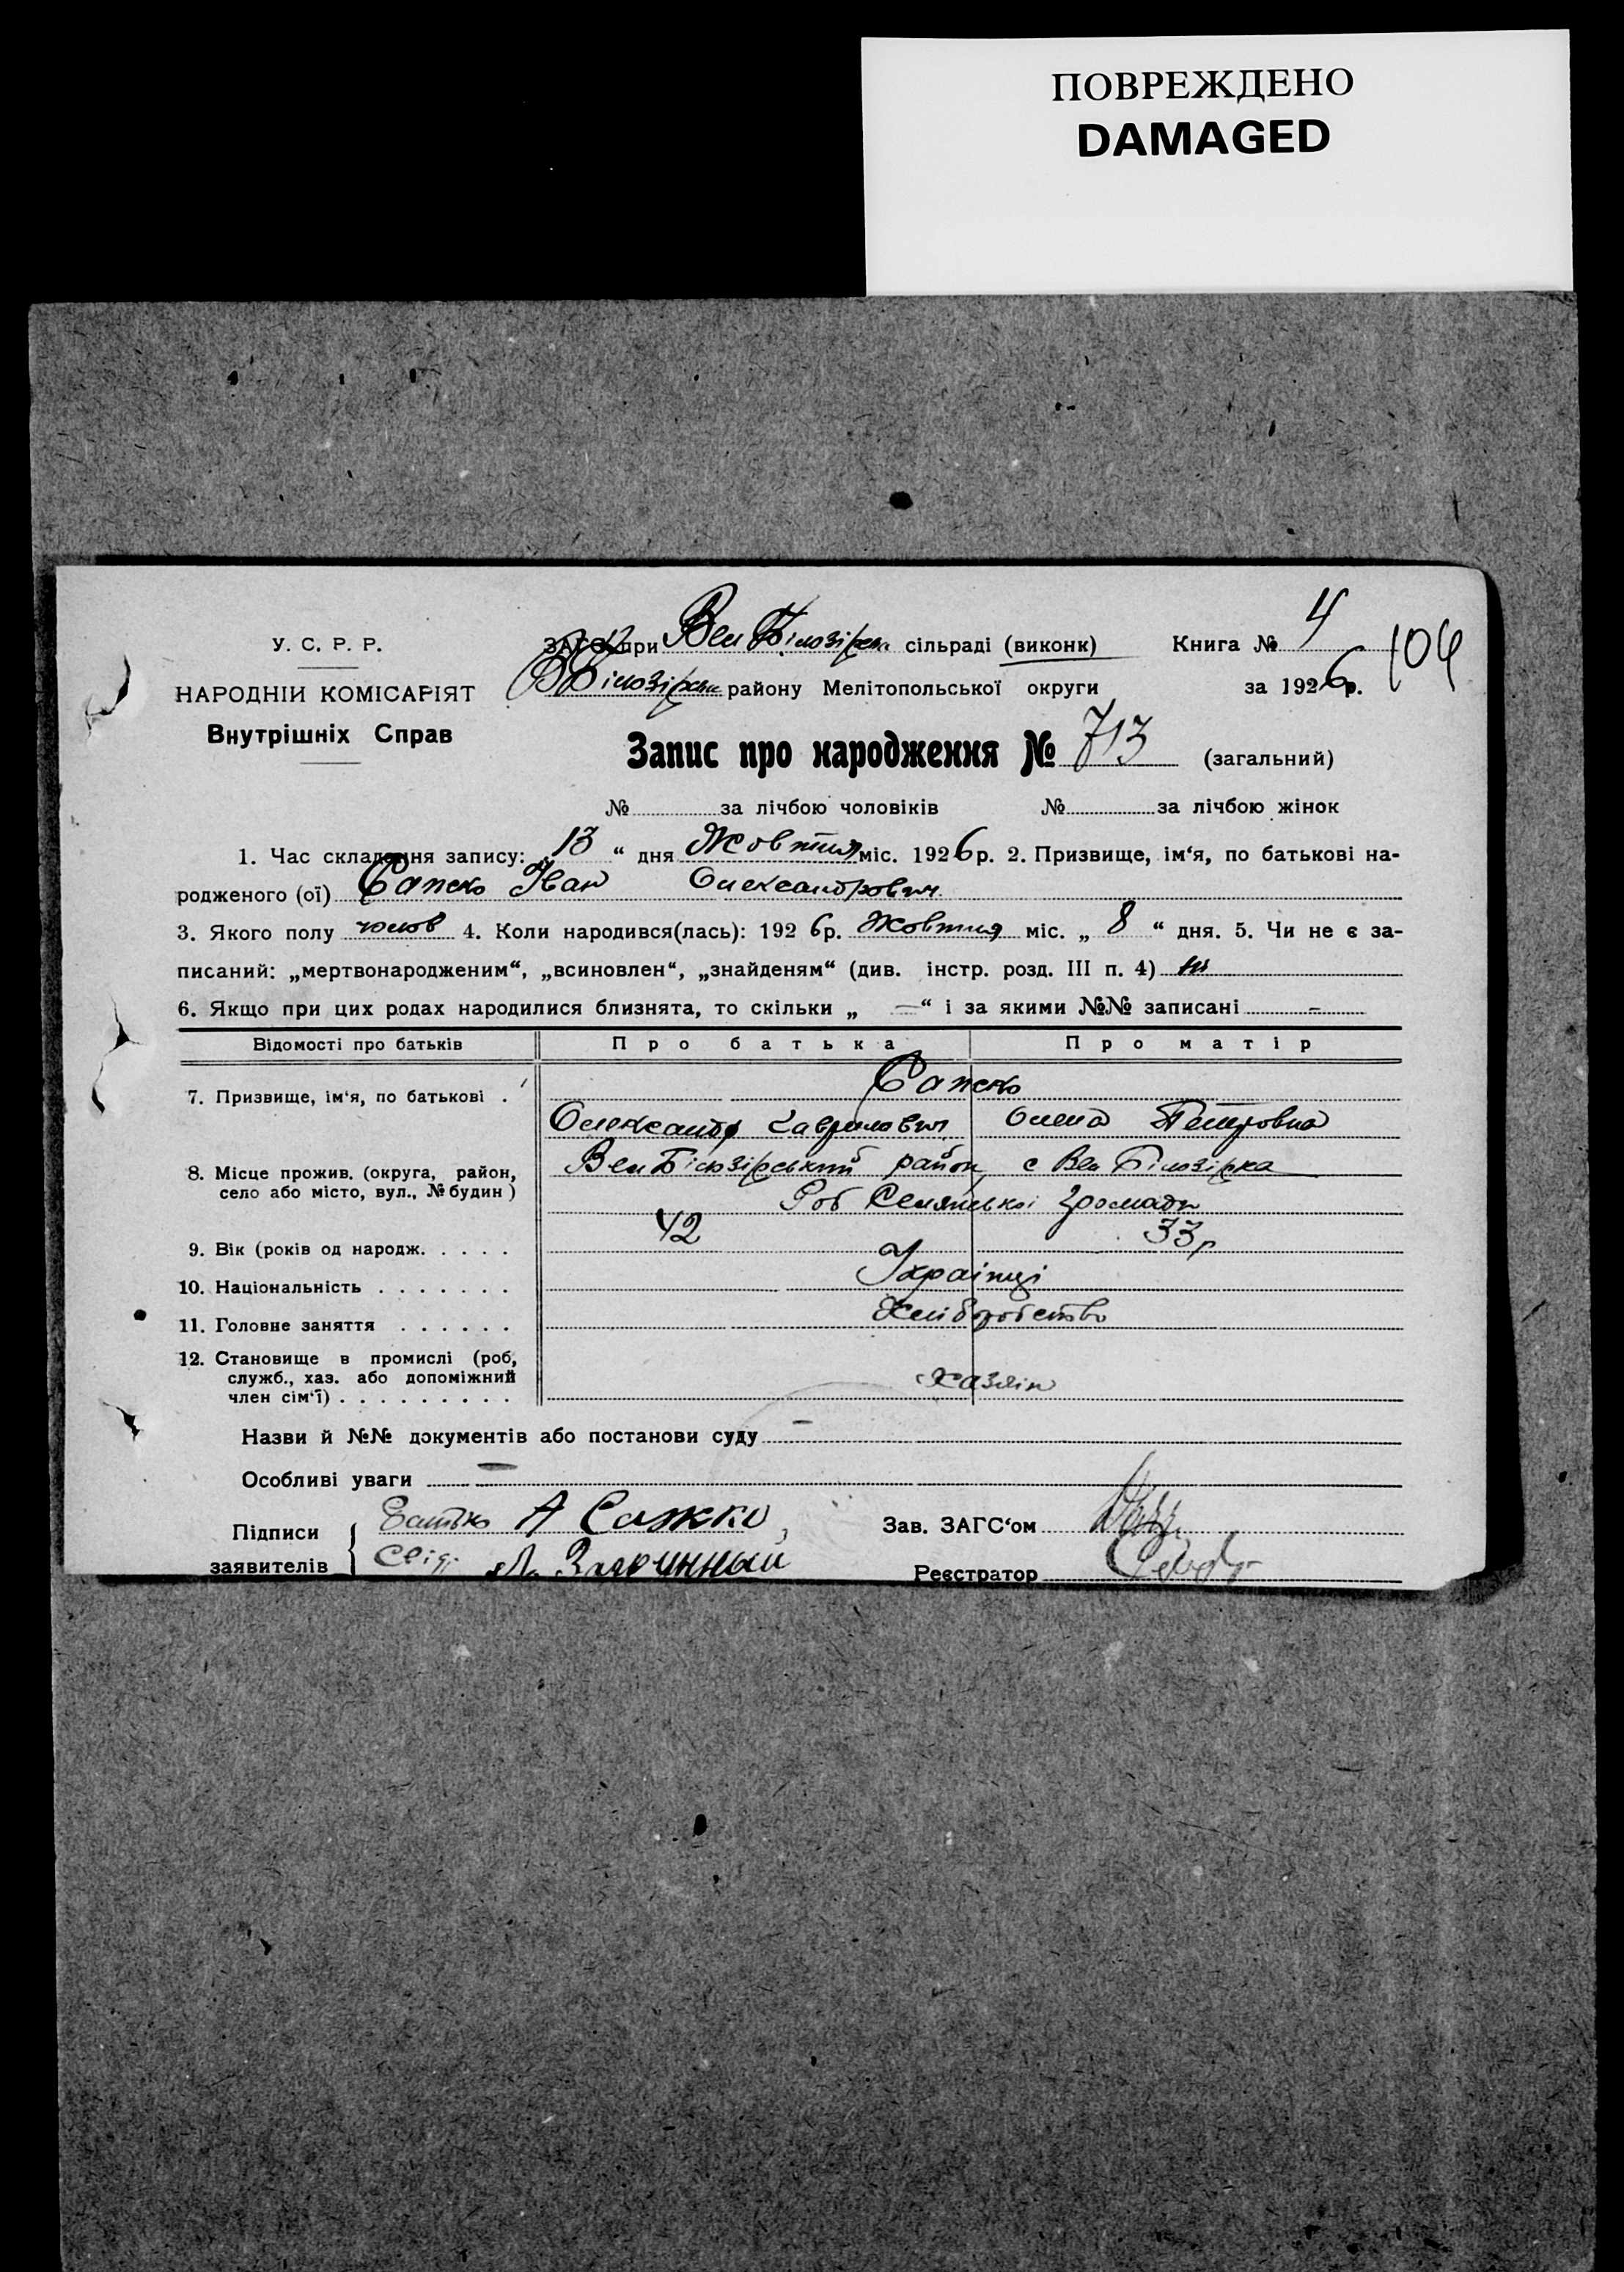 ПОВРЕЖДЕНО
DAMAGED
У. С. Р. Р.
НАРОДНІЙ КОМІСАРІЯТ
Внутрішніх Справ
ЗАГС при Вел Білозірськ. сільраді (виконк) Книга № 4 104
ВБілозірськ району Мелітопольської округи за 1926 р.
Запис про народження № 713 (загальний)
№ за лічбою чоловіків № за лічбою жінок
1. Час складення запису: „ 13 “ дня Жовтня міс. 1926 р. 2. Призвище, ім‘я, по батькові на-
родженого (ої) Іван Олександрович
3. Якого полу чолов 4. Коли народився(лась): 192 6р. Жовтня міс. „ 8 “ дня. 5. Чи не є за-
писаний: „мертвонародженим“, „всиновлен“, „знайденям“ (див. інстр. розд. III п. 4) ні
6. Якщо при цих родах народилися близнята, то скільки „ — “ і за якими №№ записані –
Відомості про батьків Про батька Про матір
7. Призвище, ім‘я, по батькові .
Олександр Гаврилович Олена Петровна
8. Місце прожив. (округа, район, село або місто, вул., № будин) ВелБілозірський район, с Вел Білозірка
Роб Селянської Громади
9. Вік (років од народж. . . . . 42 33 р
10. Національність . . . . . . . Українці
11. Головне заняття . . . . . . Хліборобство
12. Становище в промислі (роб,
служб., хаз. або допоміжний
член сім‘ї) . . . . . . . . . хазяін
Назви й №№ документів або постанови суду –
Особливі уваги —
Підписи заявителів { Батько А Зав. ЗАГС‘ом
Свід. Реєстратор